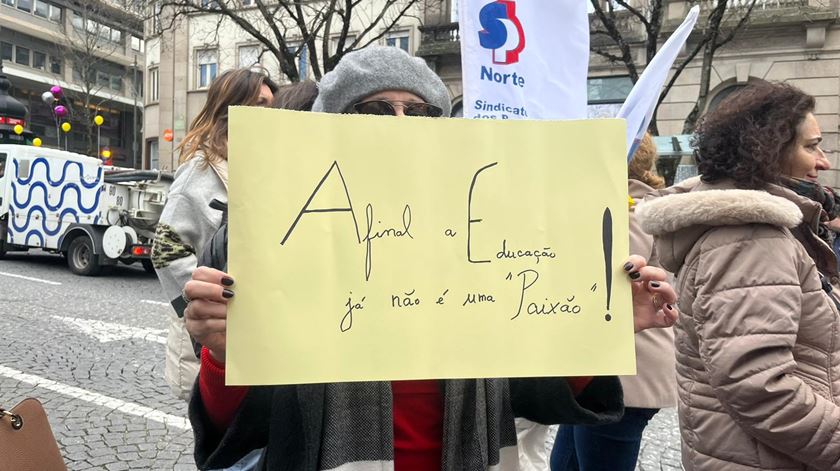 SP
Norte
Sindicato
dos P
Afinal a Educação
já não é uma "Paixão"!